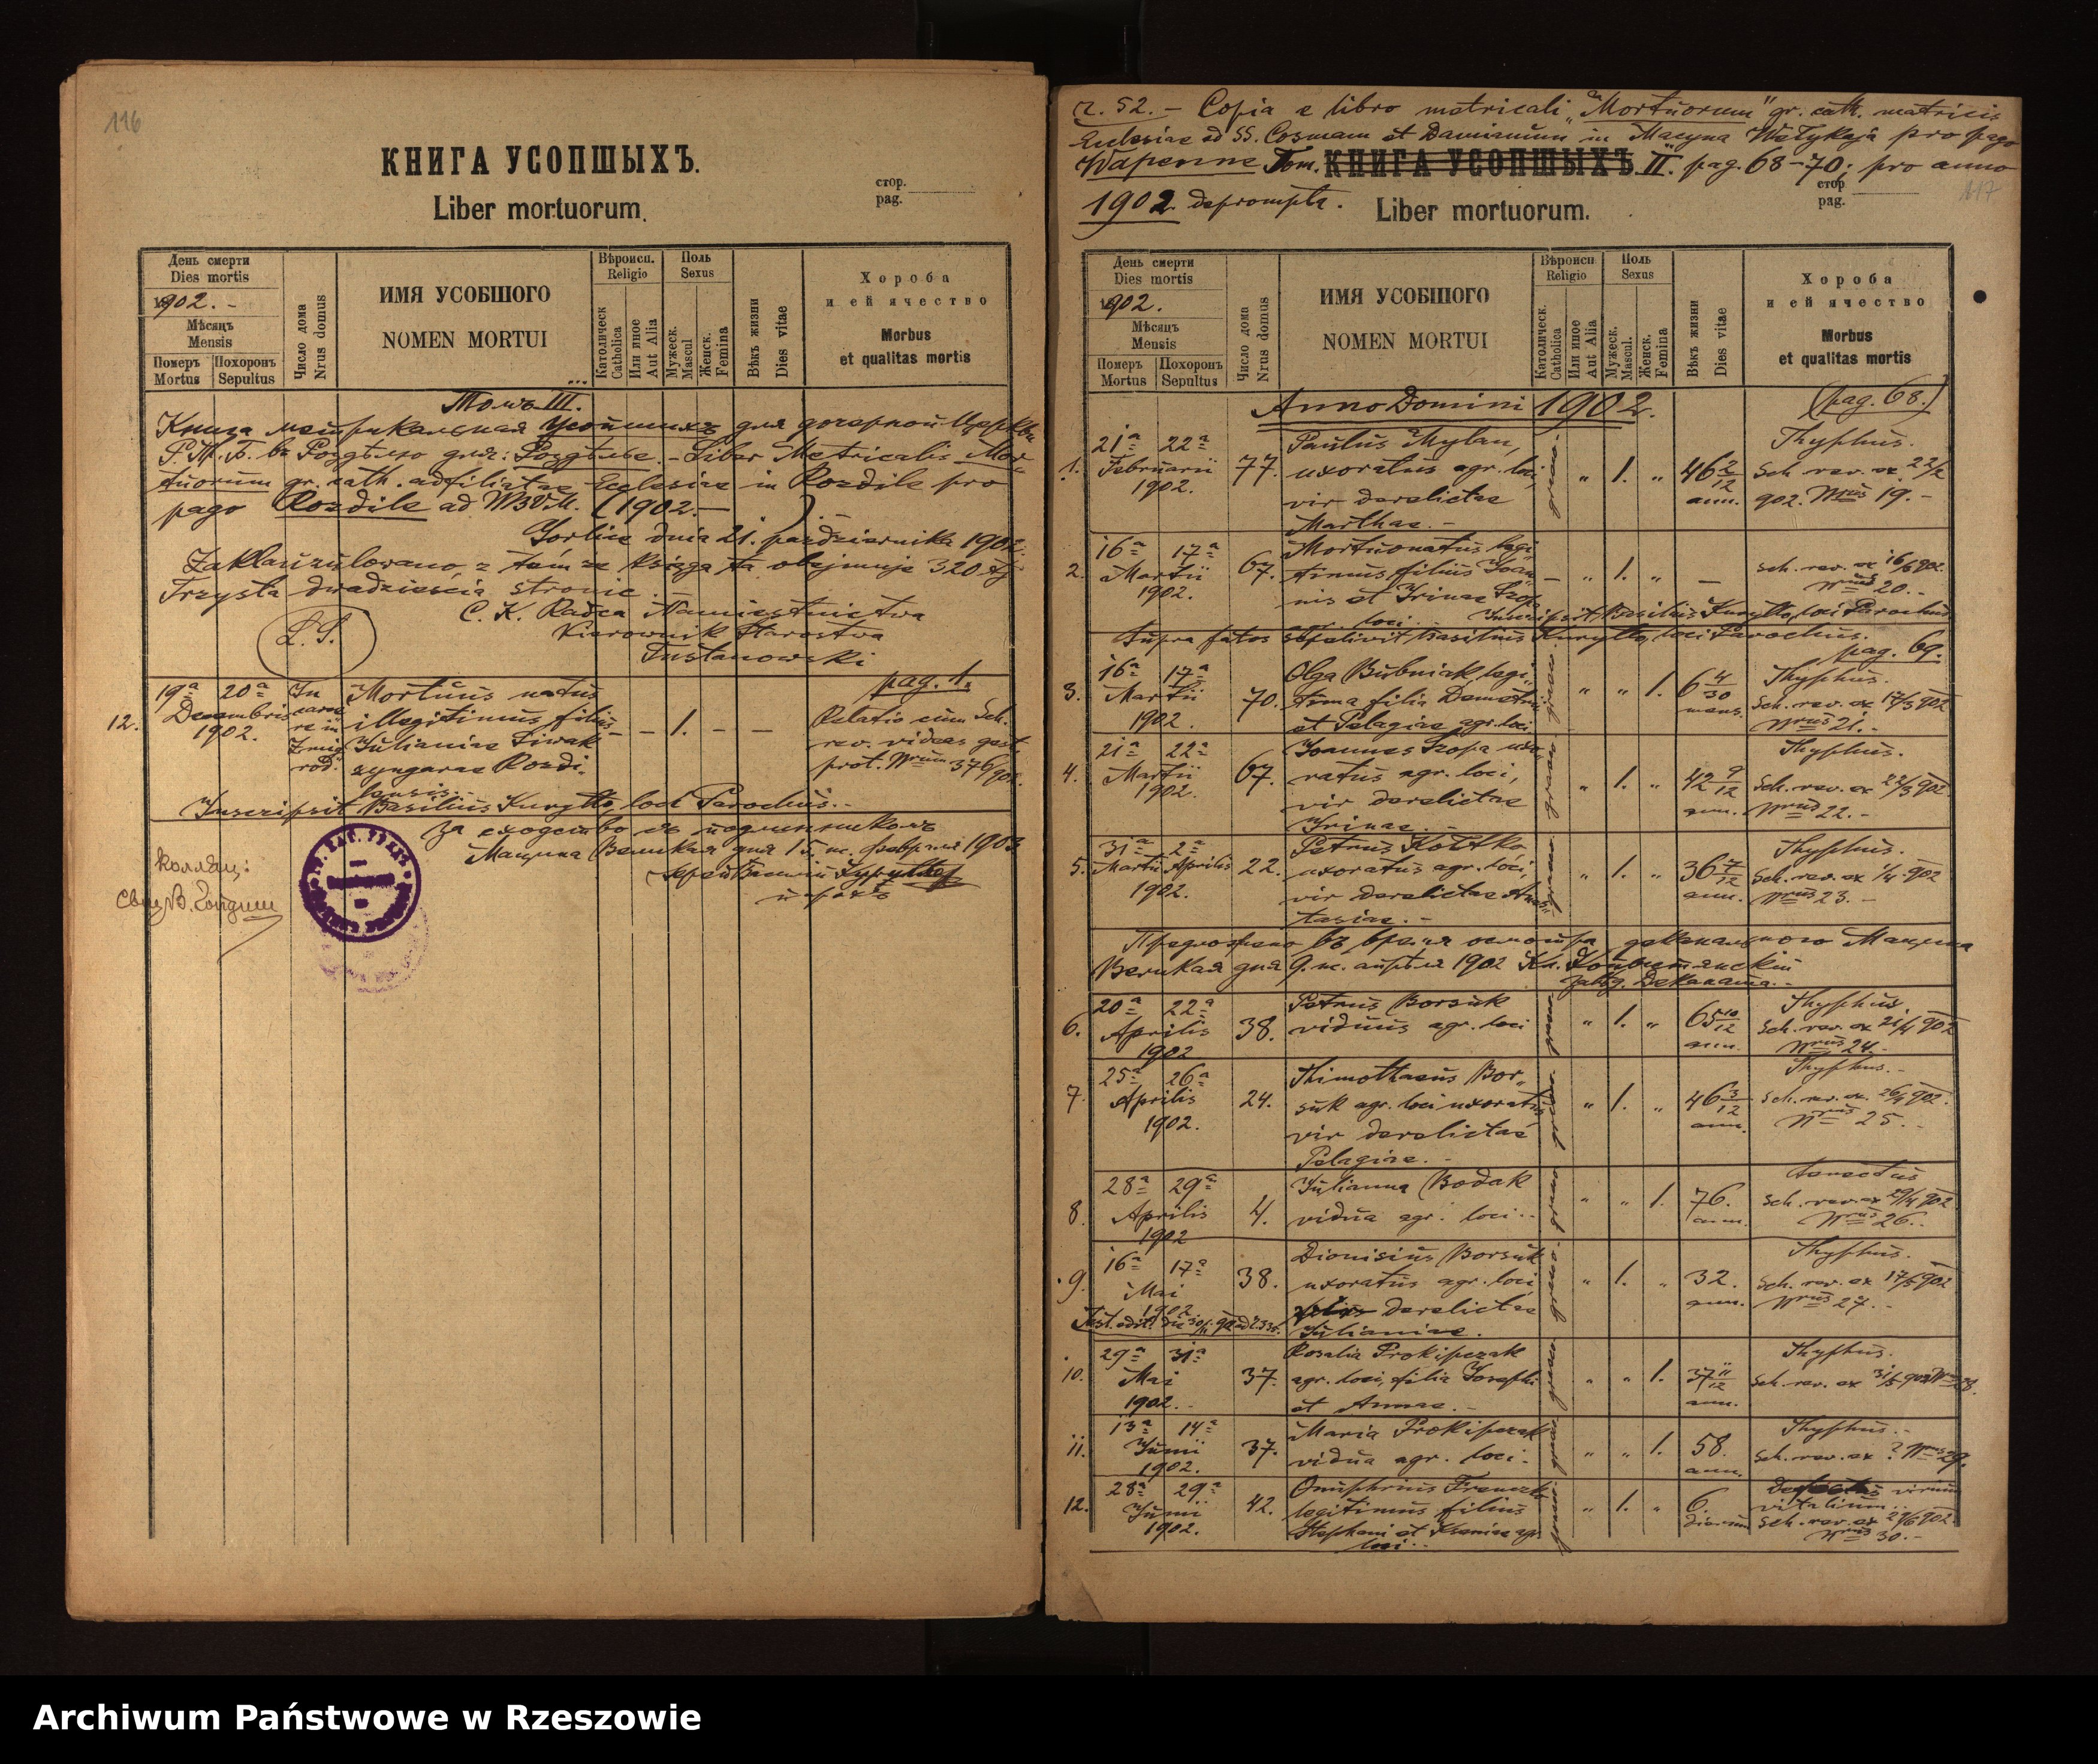 116
КНИГА УСОПШЫХЪ.
Liber mortuorum.
стор.
pag.
День смерти
Dies mortis
1902. -
Мѣсяцъ
Mensis
Померъ
Mortus
Похоронъ
Sepultus
Число дома
Nrus domus
ИМЯ УСОБШОГО
NOMEN MORTUI
Вѣроисп.
Religio
Католическ
Catholica
Или иное
Aut Alia
Поль
Sexus
Мужеск.
Mascul
Женск.
Femina
Вѣкъ жизни
Dies vitae
Хороба
и ей ячество
Morbus
et qualitas mortis
Томъ III.
Книга метрикальная Усопшихъ для дочерной Церкви
въ Роздѣлью для: Роздѣлье. - Liber Metricalis Mor-
tuorum gr. cath. adfiliatae Ecclesiae in Rozdile pro
pago Rozdile ad MBVM. (1902.- ).-
Gorlice dnia 21. października 1902.
Zaklauzulowano, z tém że księga ta obejmuje 320 tj.
Trzysta dwadzieścia stronic.
C. K. Radca Namiestnictwa
L.S.
Kierownik Starostwa
Tustanowski
pag. 1.
12.
19ª 20ª
Decembris
1902.
In
carce
re in
Żmig
ród.
Mortuus natus
illegitimus filius
Julianiae Siwak
zyngarae Rozdi-
lensis.-
- - 1. - -
Relatio cum Sch.
rev. videas gest.
prot. Nrum 376/902.
Inscripsit Basilius Kuryłło, loci Parochus.-
За сходство съ подлинникомъ
Мацина Великая дня 15. м. февраля 1903
Василій Курилло
Колляц:
117
r. 52. - Copia e libro metricali "Mortuorum" gr. cath. matricis
Ecclesiae ad SS. Cosmam et Damianum in Macyna Wełykaja pro pago
Wapenne Tom. КНИГА УСОПШЫХЪ II. pag. 68-70; pro anno
1902 deprompta.
Liber mortuorum.
стор
pag.
День смерти
Dies mortis
1902.
Мѣсяцъ
Mensis
Померъ
Mortus
Похоронъ
Sepultus
Число дома
Nrus domus
ИМЯ УСОБШОГО
NOMEN MORTUI
Вѣроисп
Religio
Католическ.
Catholica
Или иное
Aut Alia
Поль
Sexus
Мужеск.
Mascul.
Женск.
Femina
Вѣкъ жизни
Dies vitae
Хороба
и ей ячество
Morbus
et qualitas mortis
Anno Domini 1902.
(pag. 68.)
1.
21ª 22ª
Februarii
1902.
77.
Paulus Mylan,
uxoratus agr. loci,
vir derelictae
Marthae.-
graeco
" 1. "
46 2/12
ann.
Thyphus.
Sch. rev. ex 22/2
902. Nrus 19.-
2.
16ª 17ª
Martii
1902.
67.
Mortuonatus legi-
timus filius Joan-
nis et Irinae Szopa
agr. loci.-
- " 1. " -
Sch. rev. ex 16/3 902.
Nrus 20.-
Inscripsit Basilius Kuryłło, loci Parochus.
Supra fatos sepelivit Basilius Kuryłło, loci Parochus.
pag. 69.
3.
16ª 17ª
Martii
1902.
70.
Olga Bubniak, legi-
tima filia Demetrii
et Pelagiae agr. loci
graeco
" " 1.
6 4/30
mens.
Thyphus.
Sch. rev. ex 17/3 902
Nrus 21.-
4.
21ª 22ª
Martii
1902.
67.
Joannes Szopa uxo-
ratus agr. loci,
vir derelictae
Irinae.-
graeco
" 1. "
42 9/12
ann.
Thyphus.
Sch. rev. ex 22/3 902.
Nrus 22.-
5.
31ª 2ª
Martii Aprilis
1902.
22.
Petrus Kotłko
uxoratus agr. loci,
vir derelictae Anas-
tasiae.-
graeco
" 1. "
36 7/12
ann.
Thyphus.
Sch. rev. ex 1/4 902
Nrus 23.-
Предложено въ время осмотра деканального Мацина
Великая дня 9. м. апрѣля 1902
Деканата.-
6.
20ª 22ª
Aprilis
1902
38.
Petrus Borsuk
viduus agr. loci
graeco
" 1. "
65 10/12
ann.
Thyphus
Sch. rev. ex 21/4 902
Nrus 24.-
7.
25ª 26ª
Aprilis
1902.
24.
Thimothaeus Bor-
suk agr. loci uxoratus
vir derelictae
Pelagiae.-
graeco
" 1. "
46 3/12
ann.
Thyphus.-
Sch. rev. ex. 26/4 902.
Nrus 25.-
8.
28ª 29ª
Aprilis
1902
4.
Julianna Bodak
vidua agr. loci.-
graeco
" " 1.
76.
ann.
Senectus
Sch. rev. ex 29/4 902
Nrus 26.-
9.
16ª 17ª
Mai
1902
38.
Dionisius Borsuk
uxoratus agr. loci
derelictae
Julianiae.
graeco
" 1. "
32.
ann.
Thyphus.
Sch. rev. ex 17/5 902
Nrus 27.-
10.
29ª 31ª
Mai
1902.-
37.
Rosalia Prokipczak
agr. loci, filia Josephi
et Annae.-
graeco
" " 1.
37 11/12
ann.
Thyphus.
Sch. rev. ex 31/5 902 Nrus 28.
11.
13ª 14ª
Junii
1902.
37.
Maria Prokipczak
vidua agr. loci.-
graeco
" " 1.
58.
ann.
Thyphus.-
Sch. rev. ex ? Nrus 29.
12.
28ª 29ª
Junii
1902.
42.
Onuphrius Frenczko
legitimus filius
Stephani et Xeniae agr.
loci.-
graeco
" 1. "
6.
dierum
Defectus virium
vitalium.-
Sch. rev. ex 29/6 902.
Nrus 30.-
Archiwum Państwowe w Rzeszowie